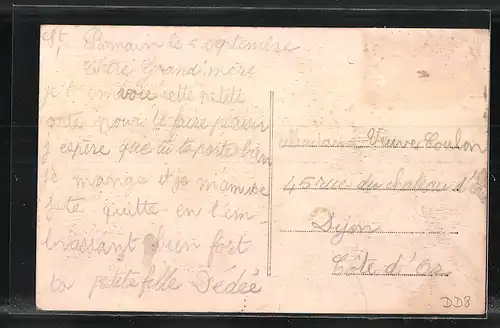 St Romain le 5 septembre
Chère Grand'mère
je t'envoie cette petite
carte pour te faire plaisir
j'espère que tu te porte bien
je mange et je m'amuse
je te quitte en t'em
brassant bien fort
ta petite fille Dédée
Madame Veuve Coulon
45 rue du chateau d'
Dijon
Côte d'Or
DD8